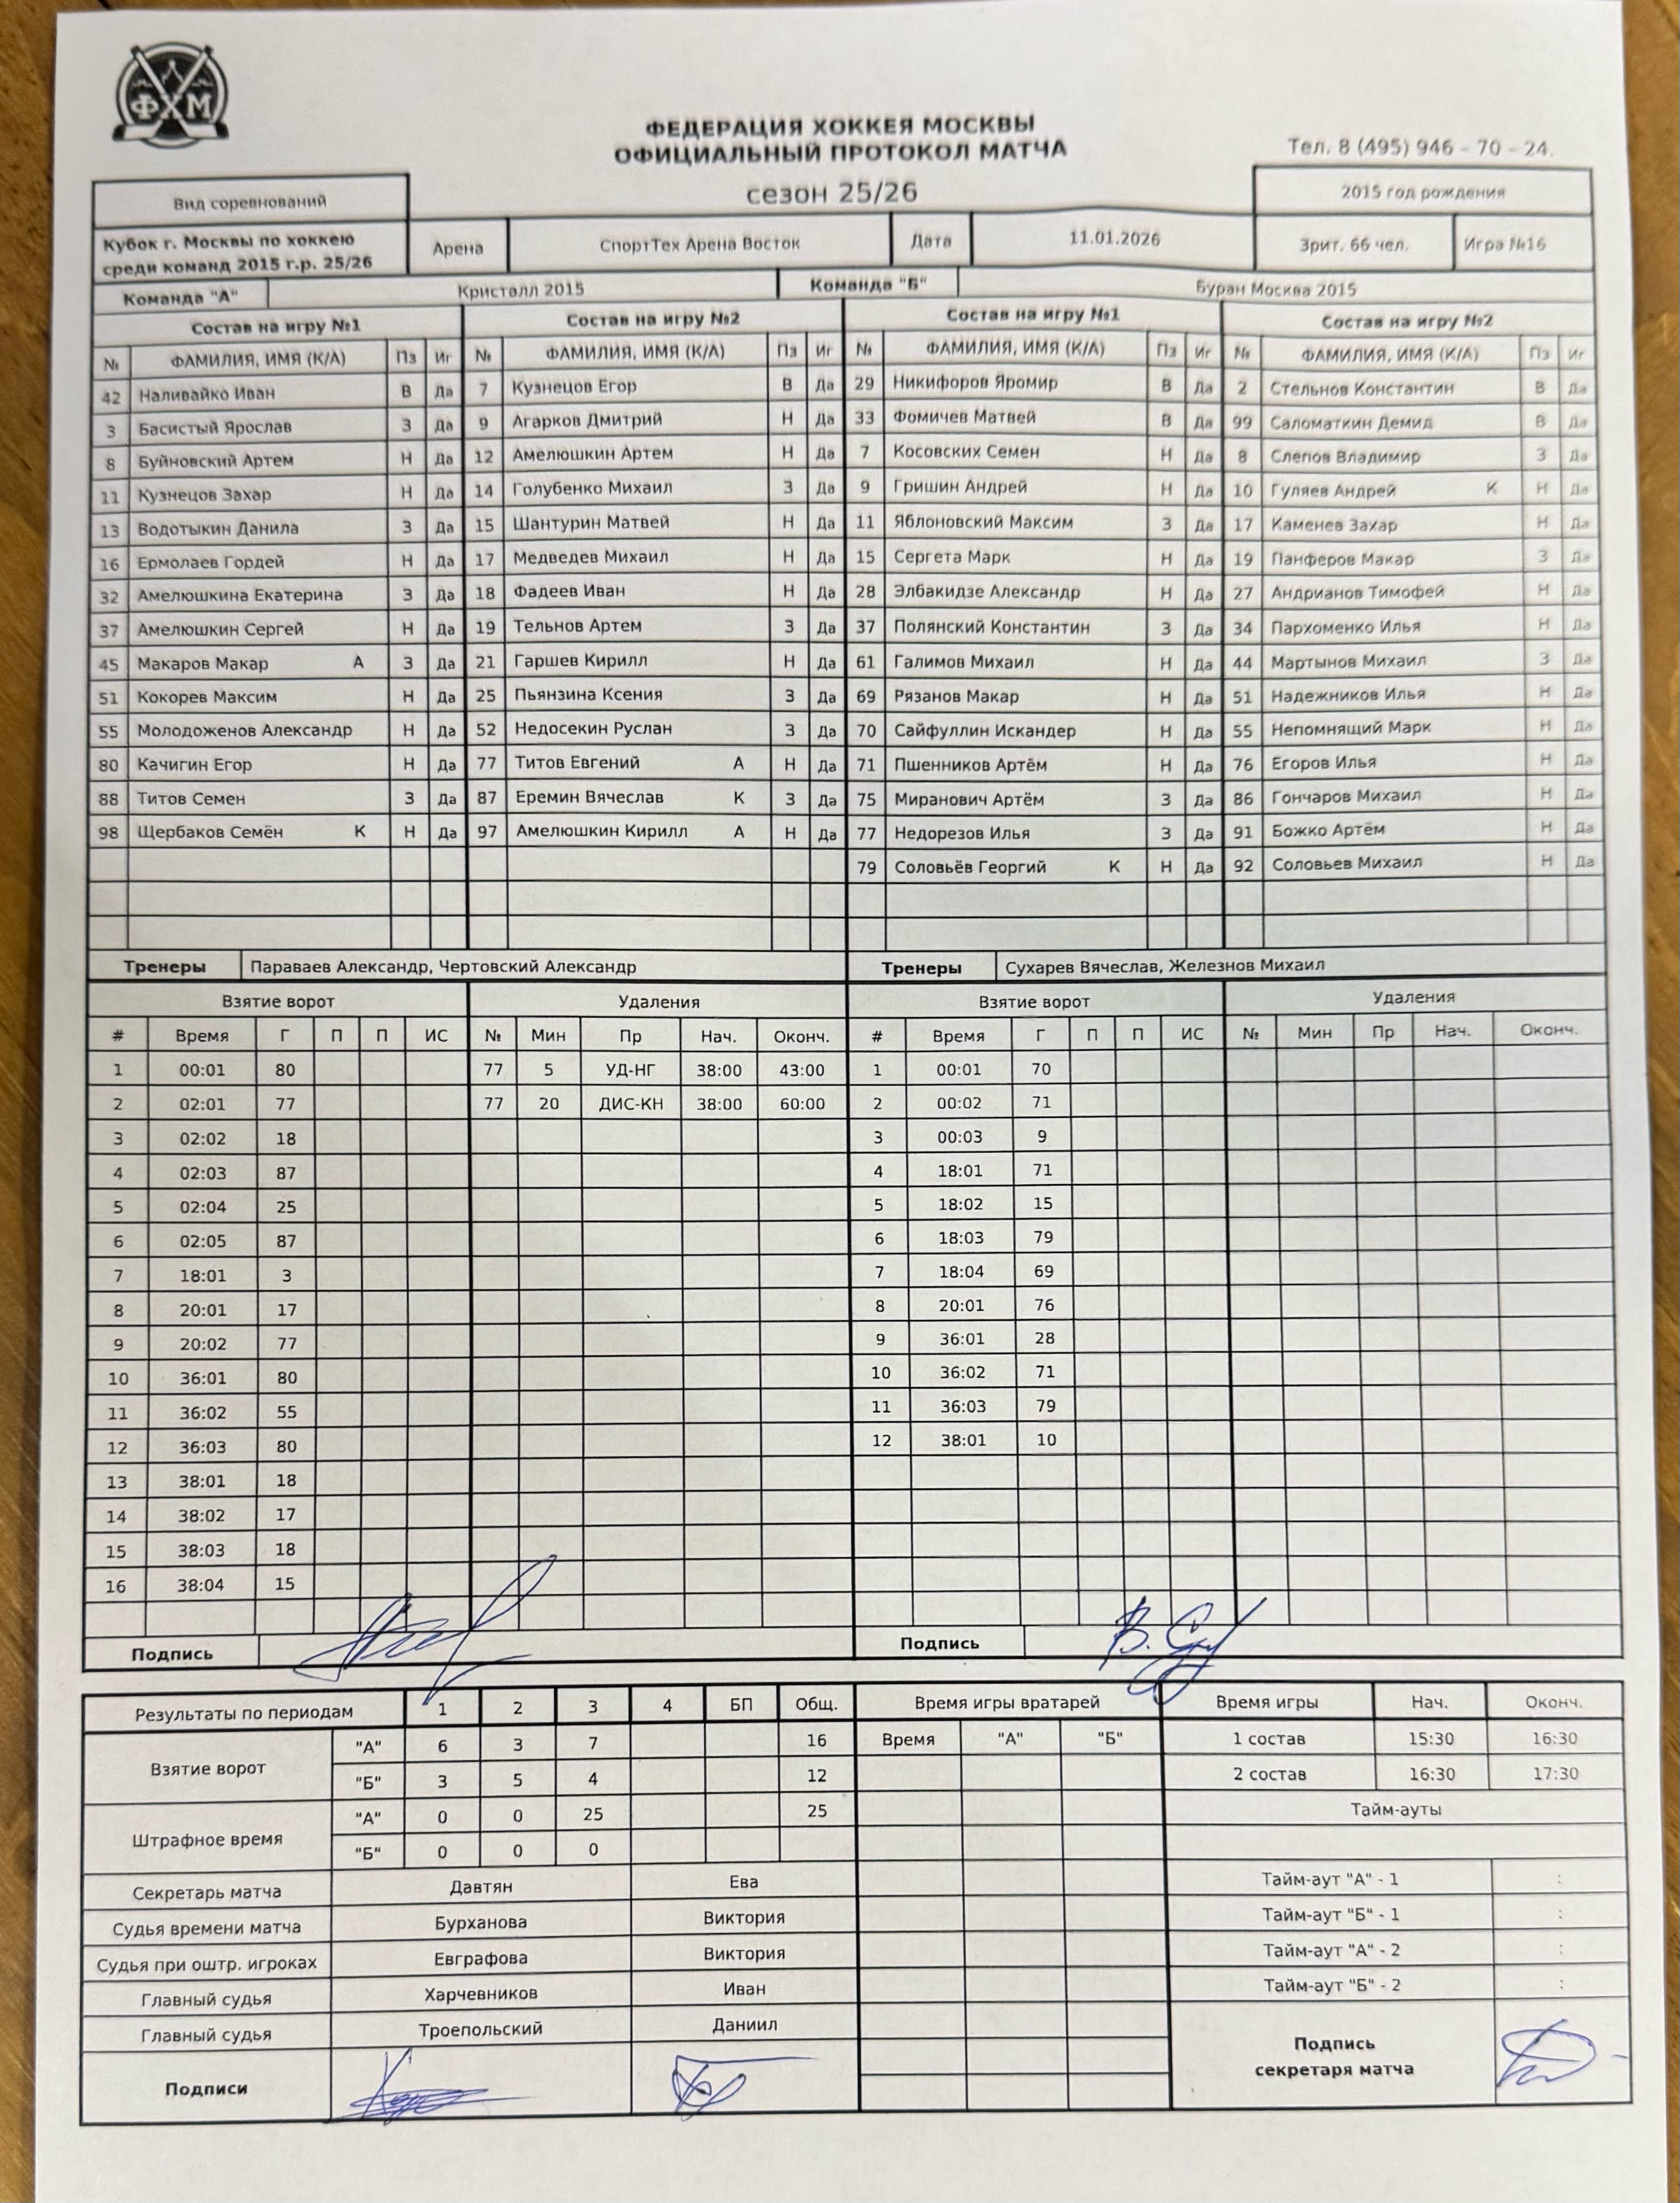 ФХМ
ФЕДЕРАЦИЯ ХОККЕЯ МОСКВЫ
ОФИЦИАЛЬНЫЙ ПРОТОКОЛ МАТЧА
Тел. 8 (495) 946 - 70 - 24.
Вид соревнований сезон 25/26 2015 год рождения
Кубок г. Москвы по хоккею среди команд 2015 г.р. 25/26 Арена СпортТех Арена Восток Дата 11.01.2026 Зрит. 66 чел. Игра №16
Команда "А" Кристалл 2015 Команда "Б" Буран Москва 2015
Состав на игру №1 Состав на игру №2 Состав на игру №1 Состав на игру №2
№ ФАМИЛИЯ, ИМЯ (К/А) Пз Иг № ФАМИЛИЯ, ИМЯ (К/А) Пз Иг № ФАМИЛИЯ, ИМЯ (К/А) Пз Иг № ФАМИЛИЯ, ИМЯ (К/А) Пз Иг
42 Наливайко Иван В Да 7 Кузнецов Егор В Да 29 Никифоров Яромир В Да 2 Стельнов Константин В Да
3 Басистый Ярослав З Да 9 Агарков Дмитрий Н Да 33 Фомичев Матвей В Да 99 Саломаткин Демид В Да
8 Буйновский Артем Н Да 12 Амелюшкин Артем Н Да 7 Косовских Семен Н Да 8 Слепов Владимир З Да
11 Кузнецов Захар Н Да 14 Голубенко Михаил З Да 9 Гришин Андрей Н Да 10 Гуляев Андрей К Н Да
13 Водотыкин Данила З Да 15 Шантурин Матвей Н Да 11 Яблоновский Максим З Да 17 Каменев Захар Н Да
16 Ермолаев Гордей Н Да 17 Медведев Михаил Н Да 15 Сергета Марк Н Да 19 Панферов Макар З Да
32 Амелюшкина Екатерина З Да 18 Фадеев Иван Н Да 28 Элбакидзе Александр Н Да 27 Андрианов Тимофей Н Да
37 Амелюшкин Сергей Н Да 19 Тельнов Артем З Да 37 Полянский Константин З Да 34 Пархоменко Илья Н Да
45 Макаров Макар А З Да 21 Гаршев Кирилл Н Да 61 Галимов Михаил Н Да 44 Мартынов Михаил З Да
51 Кокорев Максим Н Да 25 Пьянзина Ксения З Да 69 Рязанов Макар Н Да 51 Надежников Илья Н Да
55 Молодоженов Александр Н Да 52 Недосекин Руслан З Да 70 Сайфуллин Искандер Н Да 55 Непомнящий Марк Н Да
80 Качигин Егор Н Да 77 Титов Евгений А Н Да 71 Пшенников Артём Н Да 76 Егоров Илья Н Да
88 Титов Семен З Да 87 Еремин Вячеслав К З Да 75 Миранович Артём З Да 86 Гончаров Михаил Н Да
98 Щербаков Семён К Н Да 97 Амелюшкин Кирилл А Н Да 77 Недорезов Илья З Да 91 Божко Артём Н Да
79 Соловьёв Георгий К Н Да 92 Соловьев Михаил Н Да
Тренеры Параваев Александр, Чертовский Александр Тренеры Сухарев Вячеслав, Железнов Михаил
Взятие ворот Удаления Взятие ворот Удаления
# Время Г П П ИС № Мин Пр Нач. Оконч. # Время Г П П ИС № Мин Пр Нач. Оконч.
1 00:01 80 77 5 УД-НГ 38:00 43:00 1 00:01 70
2 02:01 77 77 20 ДИС-КН 38:00 60:00 2 00:02 71
3 02:02 18 3 00:03 9
4 02:03 87 4 18:01 71
5 02:04 25 5 18:02 15
6 02:05 87 6 18:03 79
7 18:01 3 7 18:04 69
8 20:01 17 8 20:01 76
9 20:02 77 9 36:01 28
10 36:01 80 10 36:02 71
11 36:02 55 11 36:03 79
12 36:03 80 12 38:01 10
13 38:01 18
14 38:02 17
15 38:03 18
16 38:04 15
Подпись Подпись
Результаты по периодам 1 2 3 4 БП Общ. Время игры вратарей Время игры Нач. Оконч.
Взятие ворот "А" 6 3 7 16 Время "А" "Б" 1 состав 15:30 16:30
"Б" 3 5 4 12 2 состав 16:30 17:30
Штрафное время "А" 0 0 25 25 Тайм-ауты
"Б" 0 0 0
Секретарь матча Давтян Ева Тайм-аут "А" - 1 :
Судья времени матча Бурханова Виктория Тайм-аут "Б" - 1 :
Судья при оштр. игроках Евграфова Виктория Тайм-аут "А" - 2 :
Главный судья Харчевников Иван Тайм-аут "Б" - 2 :
Главный судья Троепольский Даниил
Подписи Подпись секретаря матча